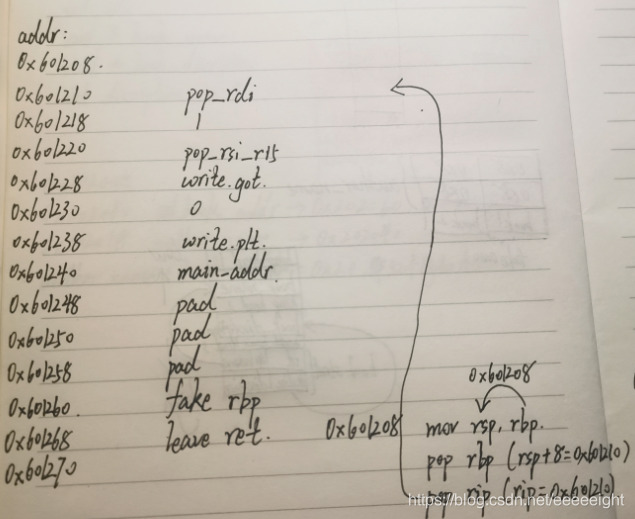 addr:
0x601208.
0x601210 pop_rdi
0x601218 1
0x601220 pop_rsi_r15
0x601228 write.got.
0x601230 0
0x601238 write.plt.
0x601240 main_addr.
0x601248 pad
0x601250 pad
0x601258 pad
0x601260. fake rbp 0x601208
0x601268 leave ret. 0x601208 mov rsp, rbp.
0x601270 pop rbp (rsp+8=0x601210)
pop rip (rip=0x601210)
https://blog.csdn.net/eeeeeight